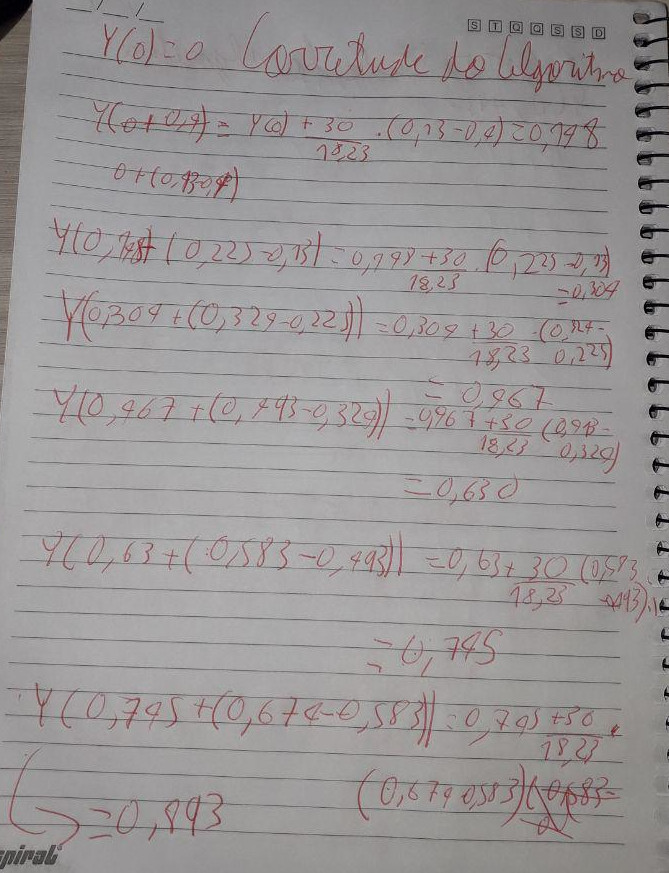 S T Q Q S S D
Y(0)=0 Corretude do Algoritmo
Y(0+0,4) = Y(0) + 30/18,23 . (0,13-0,4) = 0,148
0+(0,13-0,4)
Y(0,148+(0,225-0,13) = 0,148+30/18,23 . (0,225-0,13)
=0,304
Y(0,304+(0,324-0,225)) = 0,304+30/18,23 . (0,324-0,225)
= 0,467
Y(0,467+(0,443-0,324)) = 0,467+30/18,23 (0,443-0,324)
=0,630
Y(0,63+(0,583-0,493)) = 0,63+30/18,23 (0,583
= 0,745
Y(0,745+(0,674-0,583)) = 0,745+30/18,23 .
(0,674-0,583)
=0,893
spiral